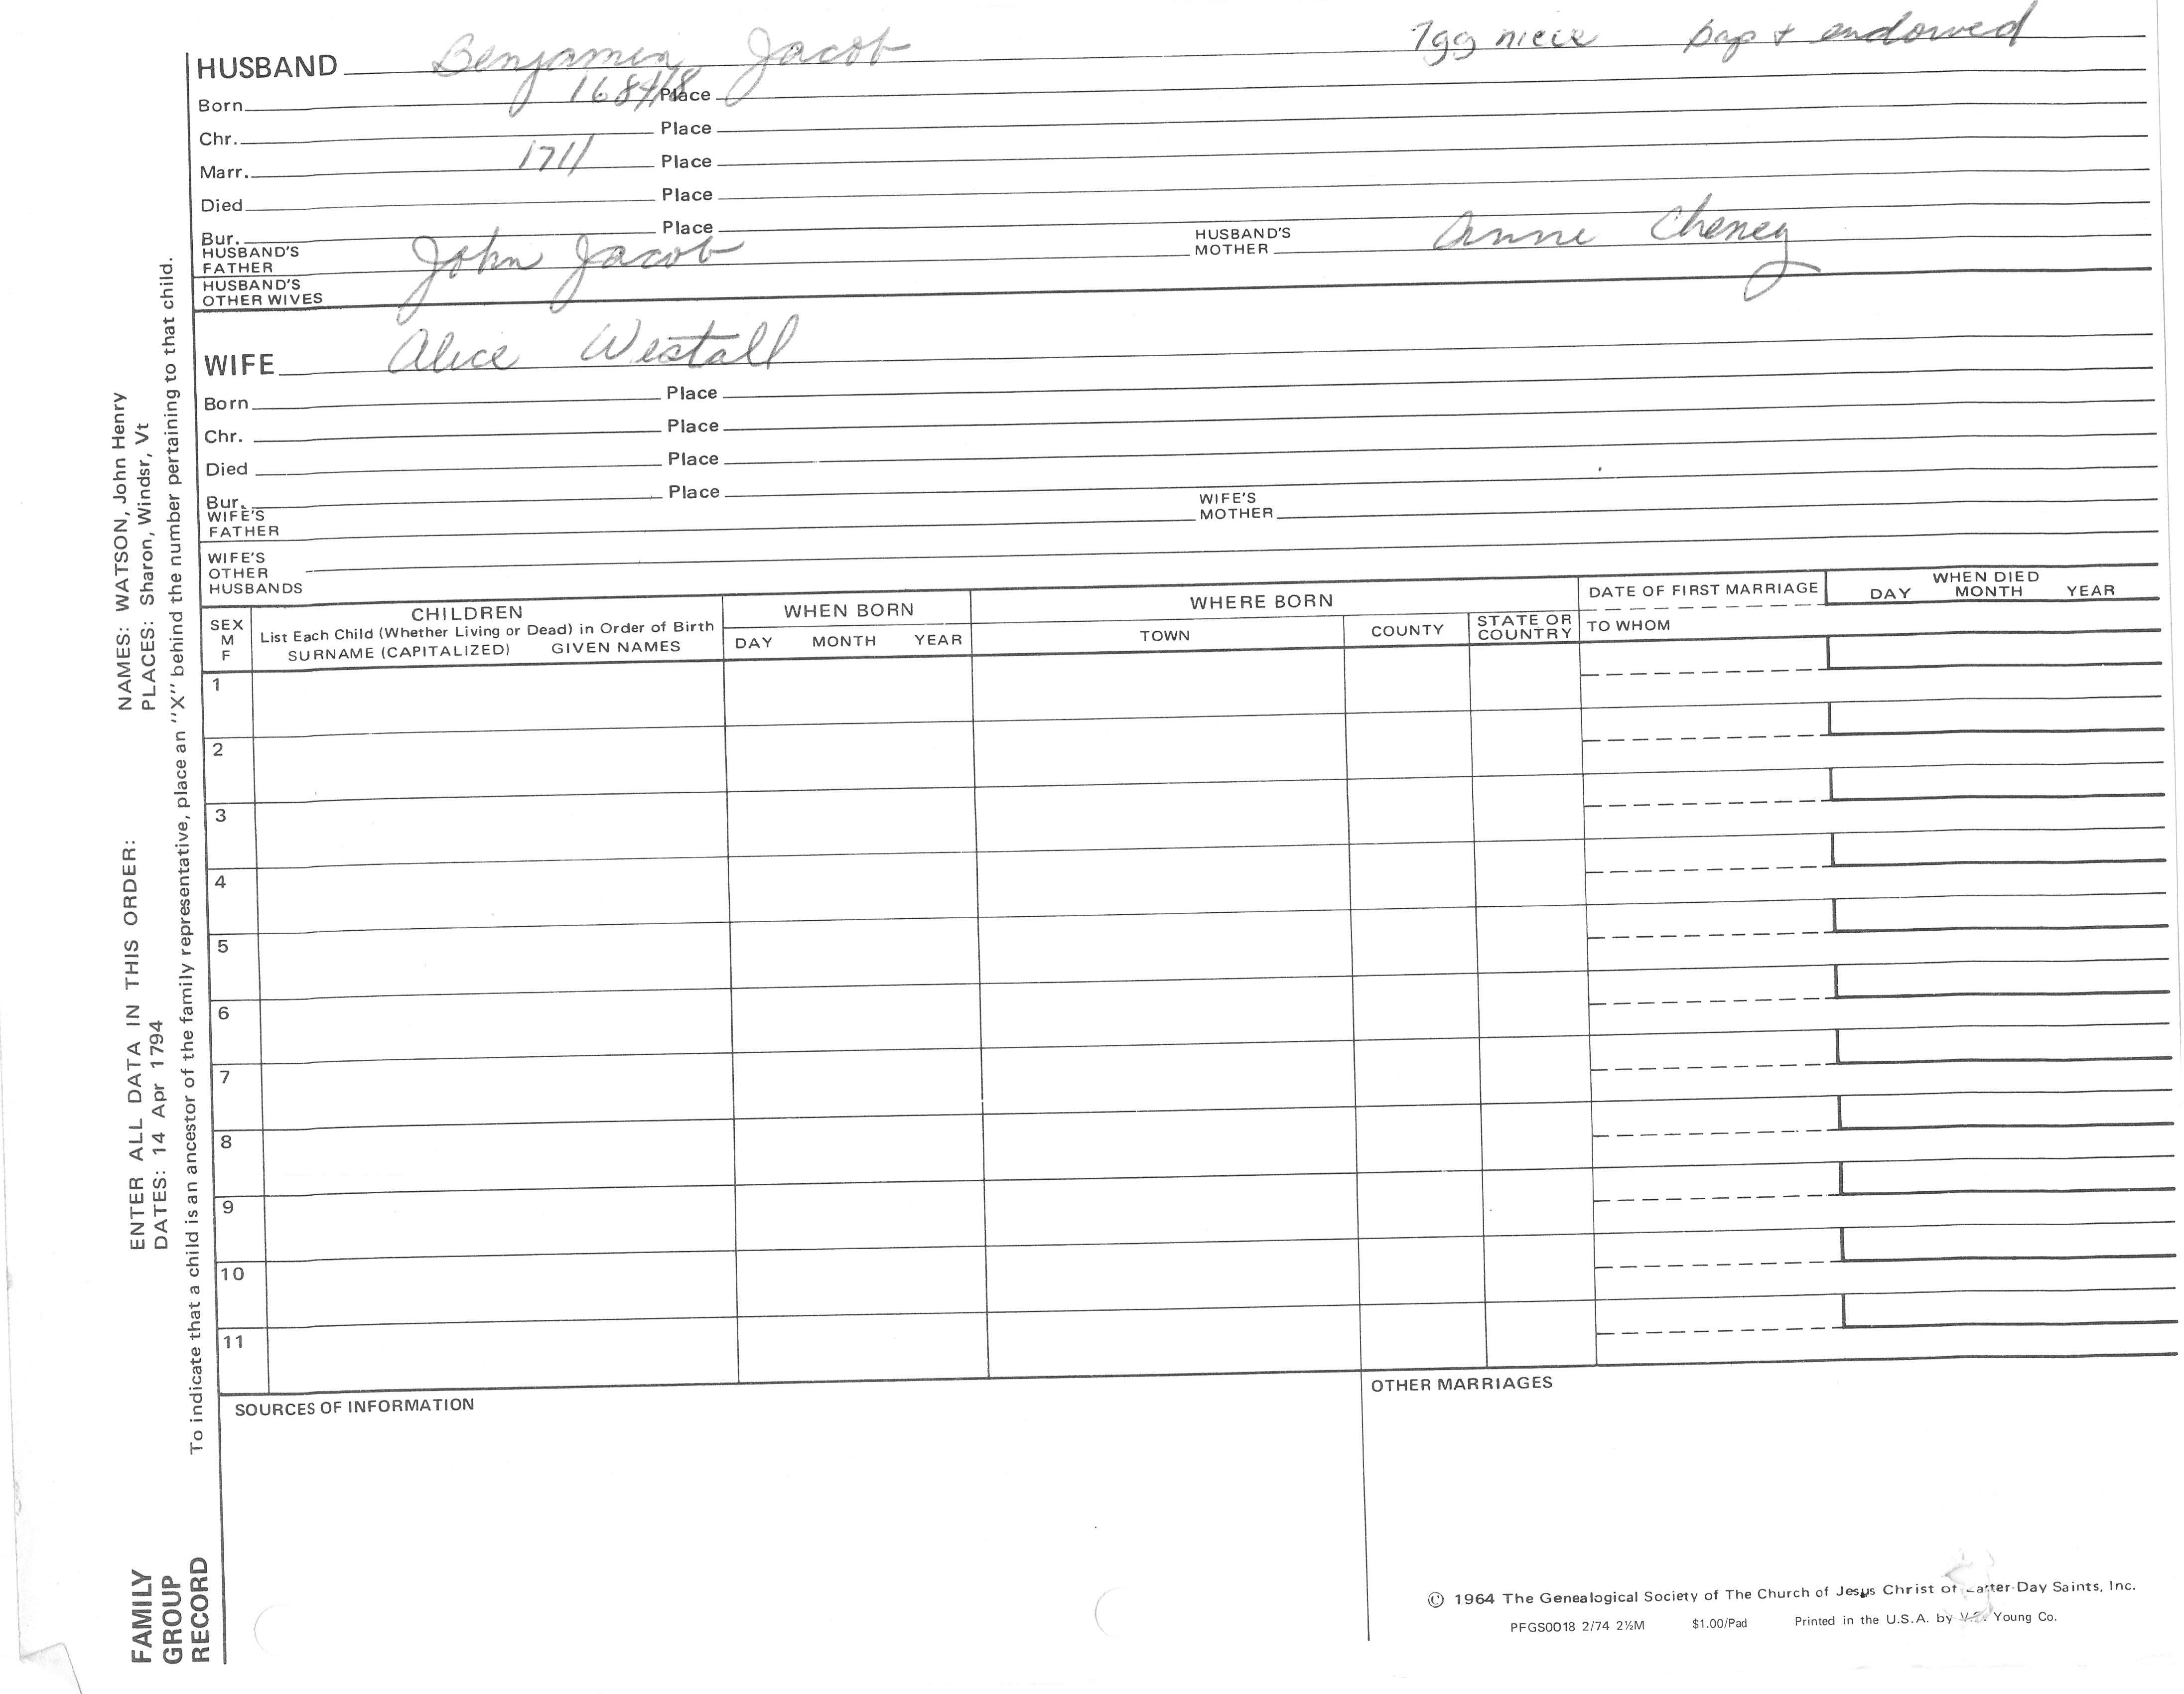 7gg niece bap + endowed
HUSBAND Benjamin Jacob
Born 1687/8 Place
Chr. Place
Marr. 1711 Place
Died Place
Bur. Place
HUSBAND'S FATHER John Jacob HUSBAND'S MOTHER Anne Cheney
HUSBAND'S OTHER WIVES
WIFE Alice Westall
Born Place
Chr. Place
Died Place
Bur. Place
WIFE'S FATHER WIFE'S MOTHER
WIFE'S OTHER HUSBANDS
SEX M F
CHILDREN
List Each Child (Whether Living or Dead) in Order of Birth
SURNAME (CAPITALIZED) GIVEN NAMES
WHEN BORN
DAY MONTH YEAR
WHERE BORN
TOWN COUNTY STATE OR COUNTRY
DATE OF FIRST MARRIAGE
TO WHOM
WHEN DIED
DAY MONTH YEAR
1
2
3
4
5
6
7
8
9
10
11
SOURCES OF INFORMATION
OTHER MARRIAGES
© 1964 The Genealogical Society of The Church of Jesus Christ of Latter-Day Saints, Inc.
PFGS0018 2/74 2½M $1.00/Pad Printed in the U.S.A. by Young Co.
FAMILY
GROUP
RECORD
ENTER ALL DATA IN THIS ORDER:
DATES: 14 Apr 1794
NAMES: WATSON, John Henry
PLACES: Sharon, Windsr, Vt
To indicate that a child is an ancestor of the family representative, place an "X" behind the number pertaining to that child.